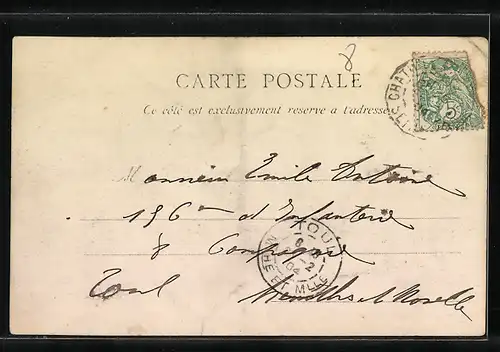 8
CARTE POSTALE
Ce côté est exclusivement réservé à l'adresse
Monsieur Emile Antoine
156me d'Infanterie
8 Compagnie
Toul Meurthe et Moselle
TOUL
8
2
04
MRHE ET MLLE
CHAT
5